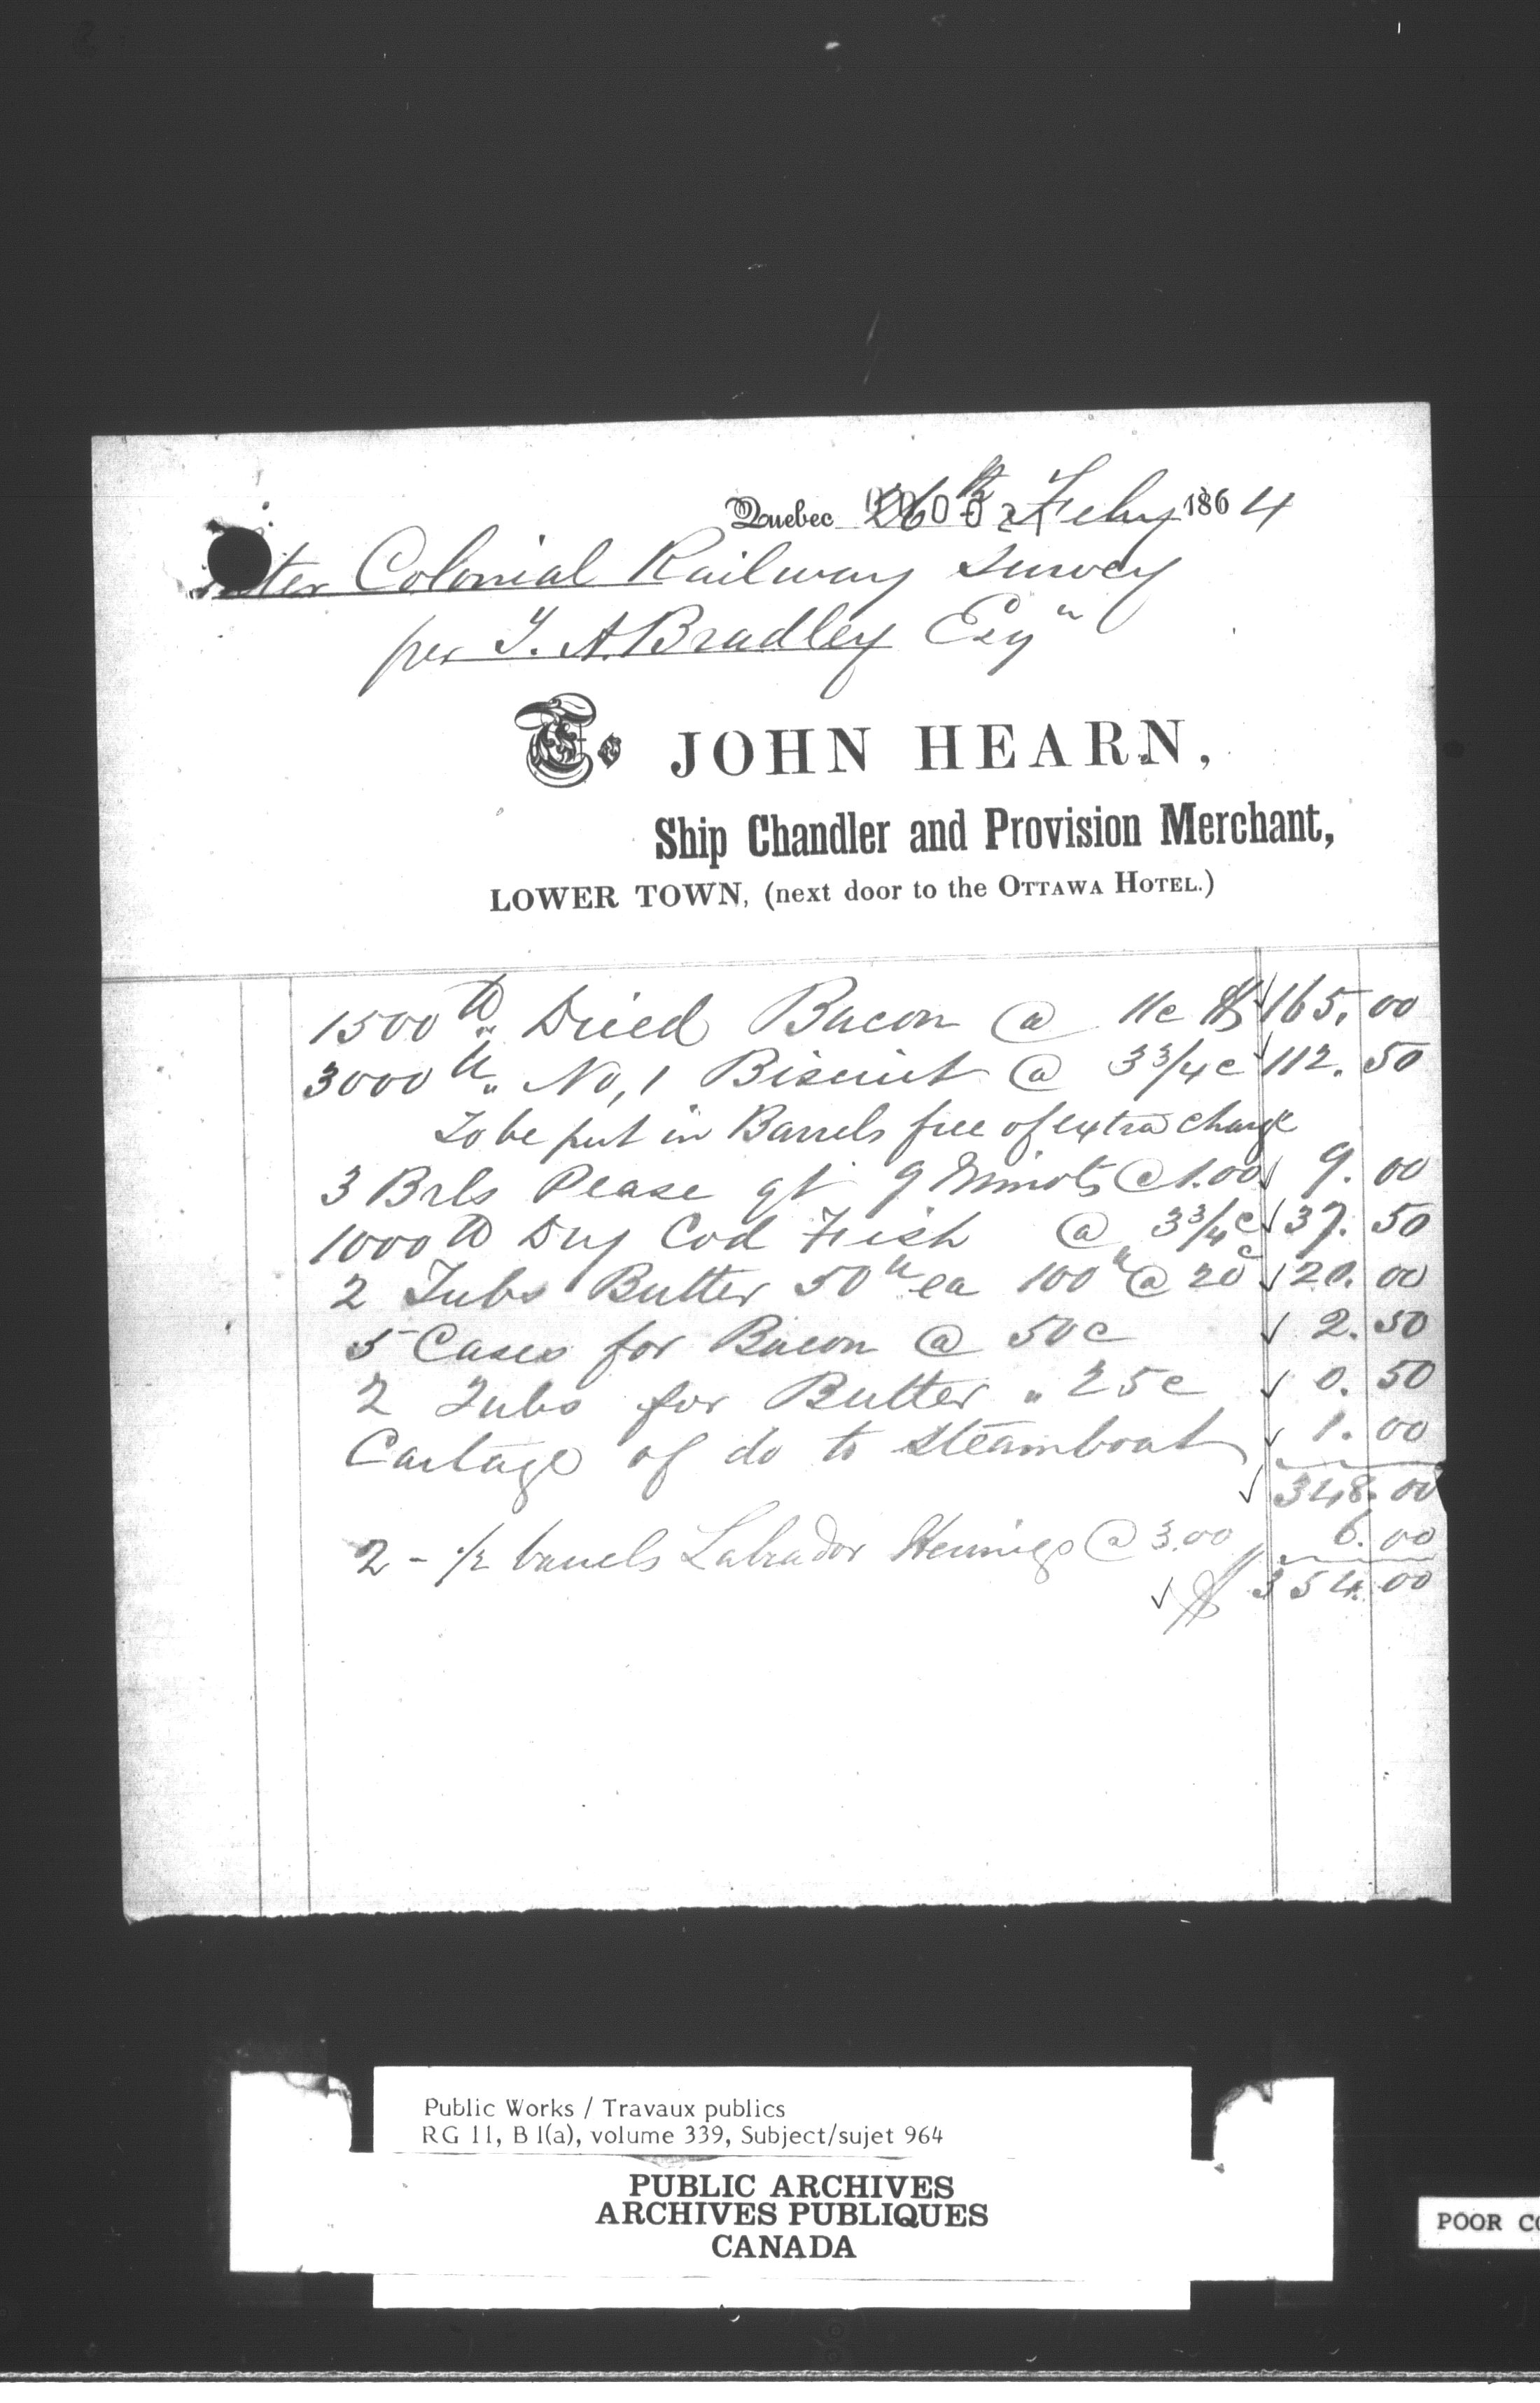 Quebec 26th Feby 1864
Inter Colonial Railway Survey
per T. A. Bradley Esqr
To JOHN HEARN,
Ship Chandler and Provision Merchant,
LOWER TOWN, (next door to the OTTAWA HOTEL.)
1500 lb Dried Bacon @ 11c $ 165.00
3000 lb No, 1 Biscuit @ 3 3/4 c 112.50
To be put in Barrels free of extra charge
3 Brls Pease qt 9 Minots @ 1.00 9.00
1000 lb Dry Cod Fish @ 3 3/4 c 37.50
2 Tubs Butter 50 lb ea 100 lb @ 20c 20.00
5 Cases for Bacon @ 50c 2.50
2 Tubs for Butter " 25c 0.50
Cartage of do to Steamboat 1.00
348.00
2 - 1/2 barrels Labrador Herrings @ 3.00 6.00
$ 354.00
Public Works / Travaux publics
RG 11, B 1(a), volume 339, Subject/sujet 964
PUBLIC ARCHIVES
ARCHIVES PUBLIQUES
CANADA
POOR